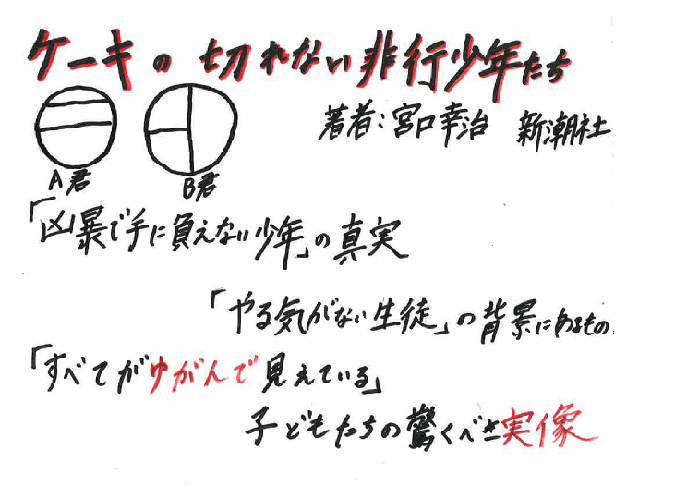 ケーキの切れない非行少年たち
著者:宮口幸治 新潮社
A君 B君
「凶暴で手に負えない少年」の真実
「やる気がない生徒」の背景にあるもの
「すべてがゆがんで見えている」
子どもたちの驚くべき実像